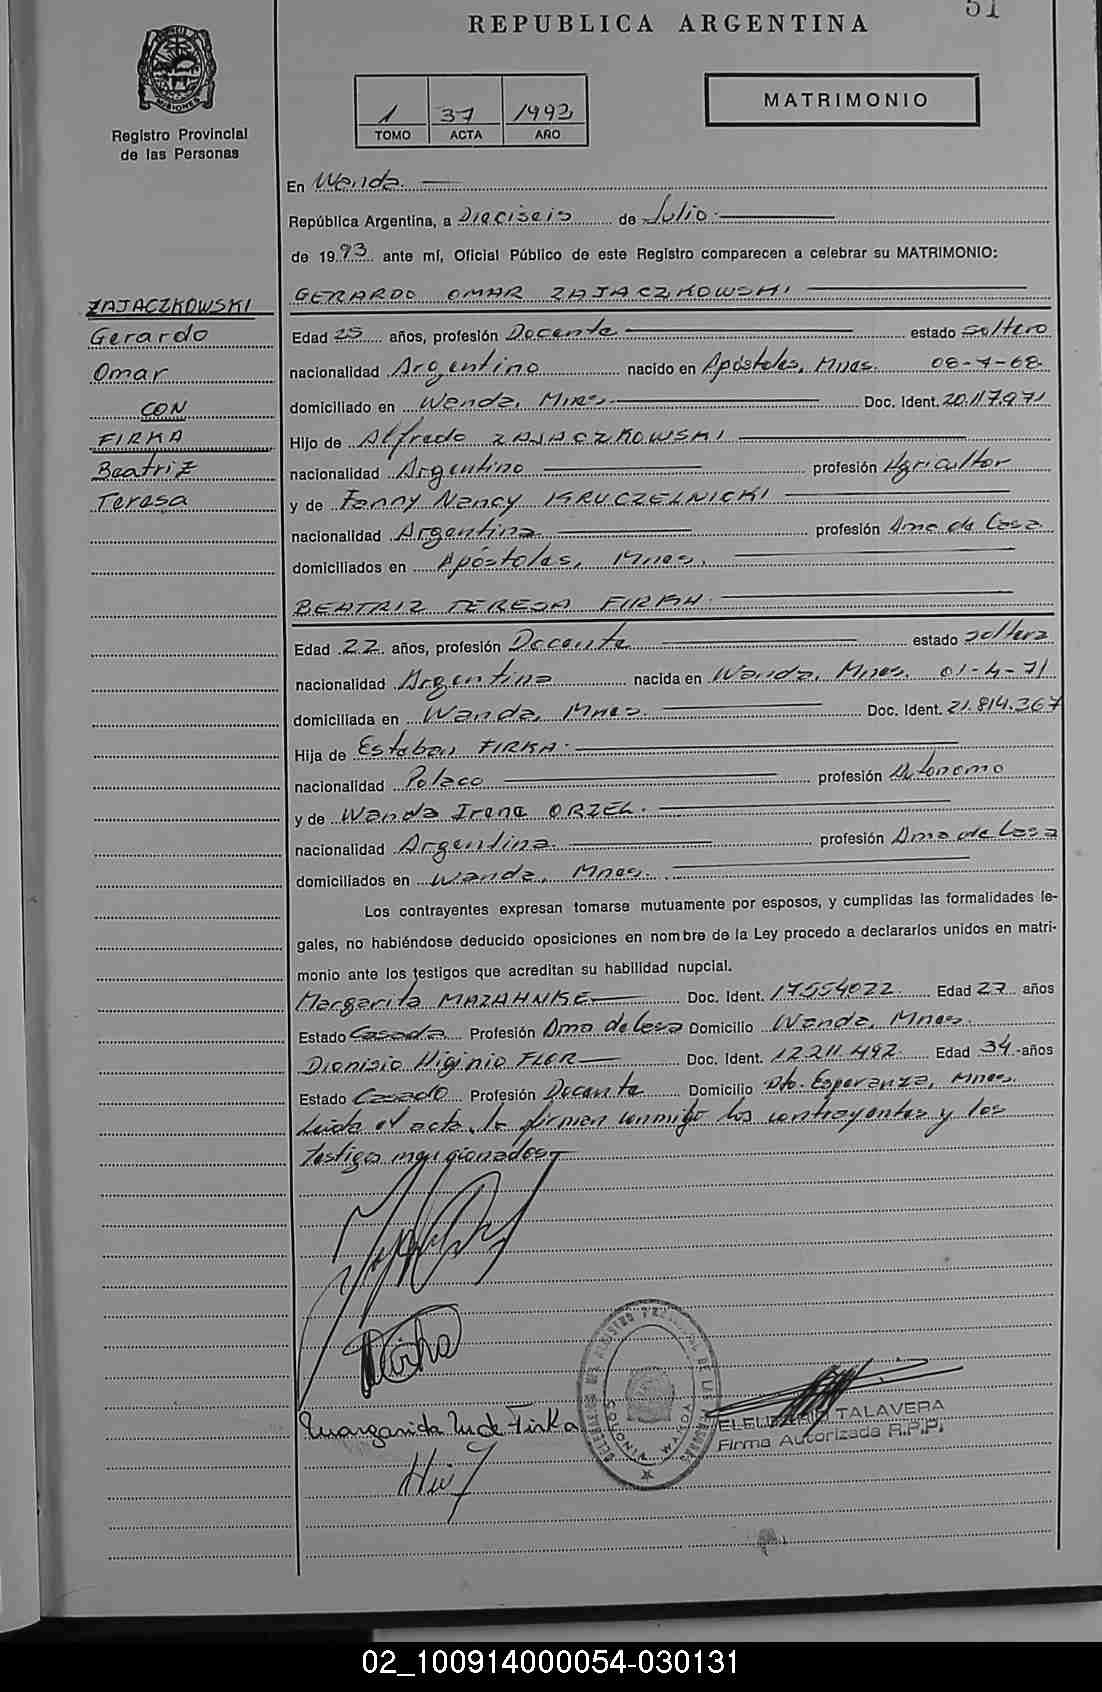 51
REPUBLICA ARGENTINA
MISIONES
Registro Provincial
de las Personas
1 37 1993
TOMO ACTA AÑO
MATRIMONIO
En Wanda.
República Argentina, a Dieciseis de Julio
de 1993 ante mí, Oficial Público de este Registro comparecen a celebrar su MATRIMONIO:
ZAJACZKOWSKI
Gerardo
Omar
CON
FIRKA
Beatriz
Teresa
GERARDO OMAR ZAJACZKOWSKI
Edad 25 años, profesión Docente estado soltero
nacionalidad Argentino nacido en Apóstoles, Mnes. 08-4-68
domiciliado en Wanda, Mnes. Doc. Ident. 20.117.971
Hijo de Alfredo ZAJACZKOWSKI
nacionalidad Argentino profesión Agricultor
y de Fanny Nancy KRUCZELNICKI
nacionalidad Argentina profesión Ama de Casa
domiciliados en Apóstoles, Mnes.
BEATRIZ TERESA FIRKA
Edad 22 años, profesión Docente estado soltera
nacionalidad Argentina nacida en Wanda, Mnes. 01-4-71
domiciliada en Wanda, Mnes. Doc. Ident. 21.814.367
Hija de Esteban FIRKA
nacionalidad Polaco profesión Autonomo
y de Wanda Irena ORZEL.
nacionalidad Argentina. profesión Ama de Casa
domiciliados en Wanda, Mnes.
Los contrayentes expresan tomarse mutuamente por esposos, y cumplidas las formalidades le-
gales, no habiéndose deducido oposiciones en nombre de la Ley procedo a declararlos unidos en matri-
monio ante los testigos que acreditan su habilidad nupcial.
Margarita MAZAHNKE Doc. Ident. 17554022 Edad 27 años
Estado Casada Profesión Ama de Casa Domicilio Wanda, Mnes.
Dionisio Higinio FLOR Doc. Ident. 12.211.492 Edad 34 años
Estado Casado Profesión Docente Domicilio Pto. Esperanza, Mnes.
Leida el acta, la firman conmigo los contrayentes y los
testigos mencionados
Margarida M de Firka
ELEUTERIO TALAVERA
Firma Autorizada R.P.P.
02_100914000054-030131